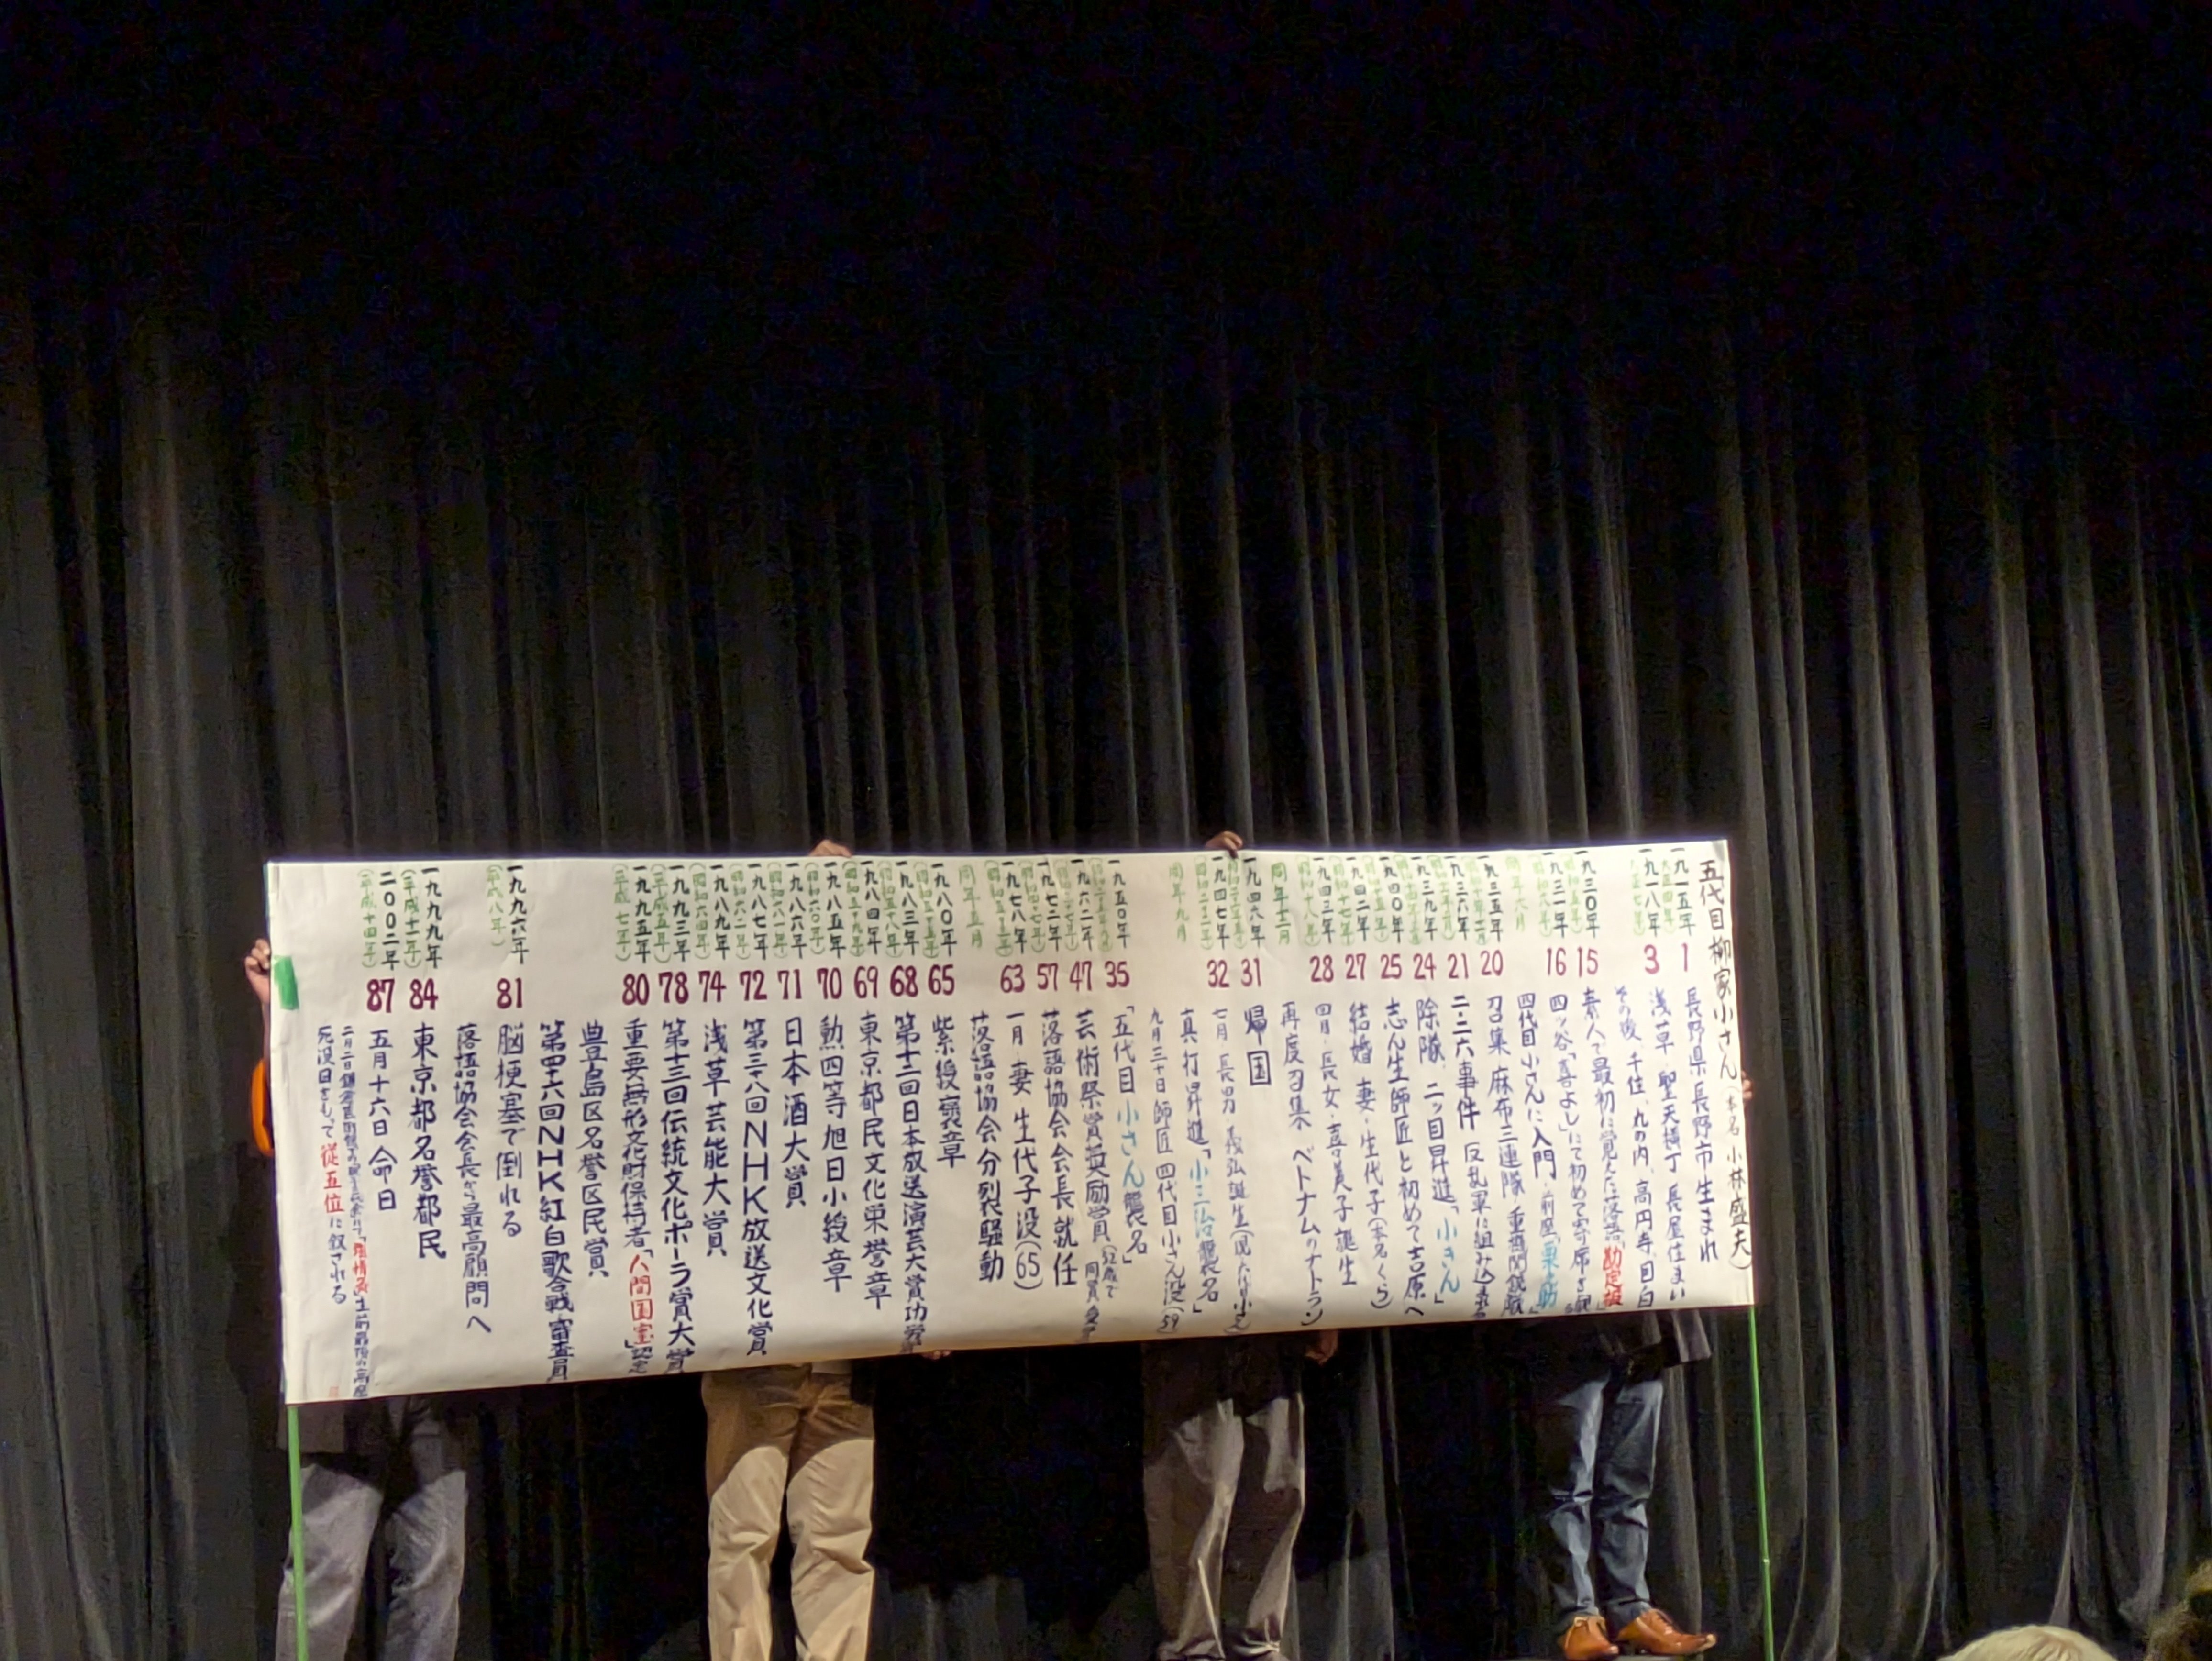 五代目 柳家小さん(本名 小林盛夫)
一九一五年 1 長野県長野市生まれ
一九一八年 3 浅草 聖天横丁 長屋住まい
その後 千住、丸の内、高円寺、目白
一九三〇年 15 素人で最初に覚えた落語「勘定板」
一九三一年(昭和六年) 16 四ッ谷「喜よし」にて初めて寄席を観る
同年六月 四代目小さんに入門 前座「栗之助」
一九三五年 20 召集 麻布三連隊 重機関銃隊
一九三六年 21 二・二六事件 反乱軍に組み込まれる
一九三九年 24 除隊 二ッ目昇進「小きん」
一九四〇年(昭和十五年) 25 志ん生師匠と初めて吉原へ
一九四二年(昭和十七年) 27 結婚 妻・生代子(本名くら)
一九四三年(昭和十八年) 28 四月 長女・喜美子誕生
同年十二月 再度召集 ベトナムのナトラン
一九四六年 31 帰国
一九四七年(昭和二十二年) 32 七月 長男 義弘誕生
同年九月 真打昇進「小三治襲名」
九月三十日 師匠 四代目小さん没(59)
一九五〇年 35 「五代目 小さん襲名」
一九六二年 47 芸術祭賞奨励賞
一九七二年(昭和四十七年) 57 落語協会会長就任
一九七八年(昭和五十三年) 63 一月 妻 生代子没(65)
同年五月 落語協会分裂騒動
一九八〇年(昭和五十五年) 65 紫綬褒章
一九八三年(昭和五十八年) 68 第十二回日本放送演芸大賞功労賞
一九八四年(昭和五十九年) 69 東京都民文化栄誉章
一九八五年(昭和六〇年) 70 勲四等旭日小綬章
一九八六年(昭和六一年) 71 日本酒大賞
一九八七年(昭和六二年) 72 第三十八回NHK放送文化賞
一九八九年(昭和六四年) 74 浅草芸能大賞
一九九三年(平成五年) 78 第十三回伝統文化ポーラ賞大賞
一九九五年(平成七年) 80 重要無形文化財保持者「人間国宝」認定
豊島区名誉区民賞
第四十六回NHK紅白歌合戦審査員
一九九六年(平成八年) 81 脳梗塞で倒れる
落語協会会長から最高顧問へ
一九九九年(平成十一年) 84 東京都名誉都民
二〇〇二年(平成十四年) 87 五月十六日 命日
二月二日 生前最後の高座
死没日をもって従五位に叙される